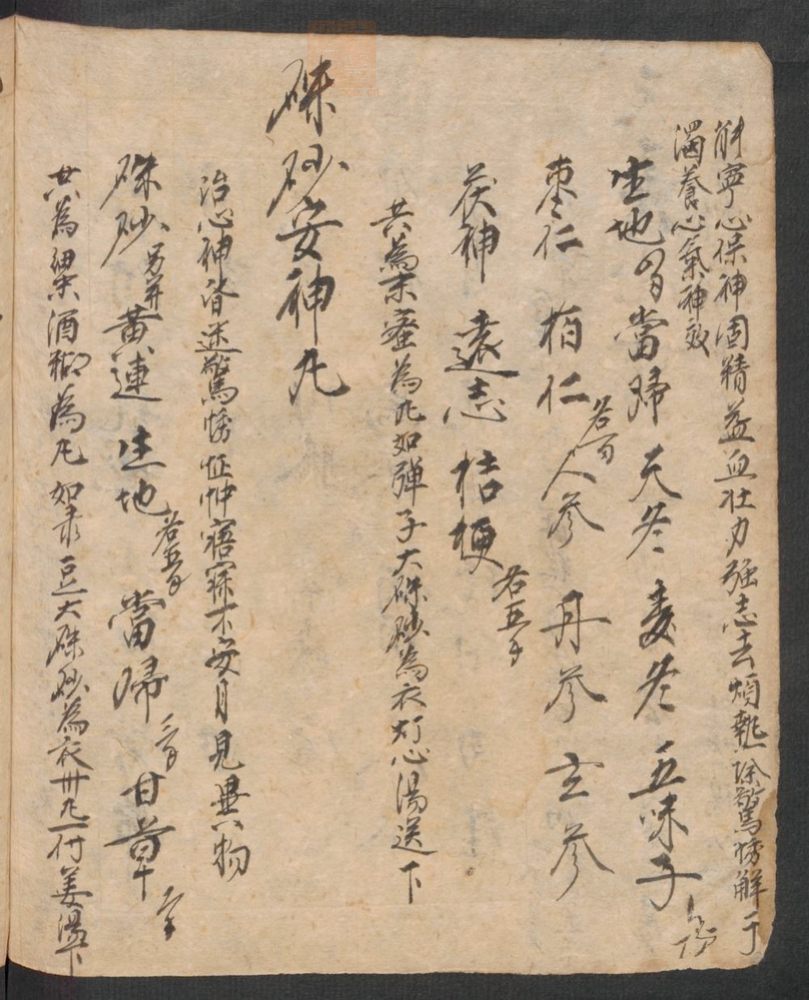 解寧心保神固精益血壯力強志去煩熱除驚悸解于
濁養心氣神效
生地 當歸 天冬 麦冬 五味子
枣仁 栢仁 各 人参 丹参 玄参
茯神 遠志 桔梗 各五
共為末蜜為丸如弹子大硃砂為衣灯心湯送下
硃砂安神丸
治心神昏迷驚悸怔忡寤寐不安目見異物
硃砂 另研 黄連 生地 各五 當歸 甘草
共為細末酒糊為丸如录豆大硃砂為衣卅丸一付姜湯下